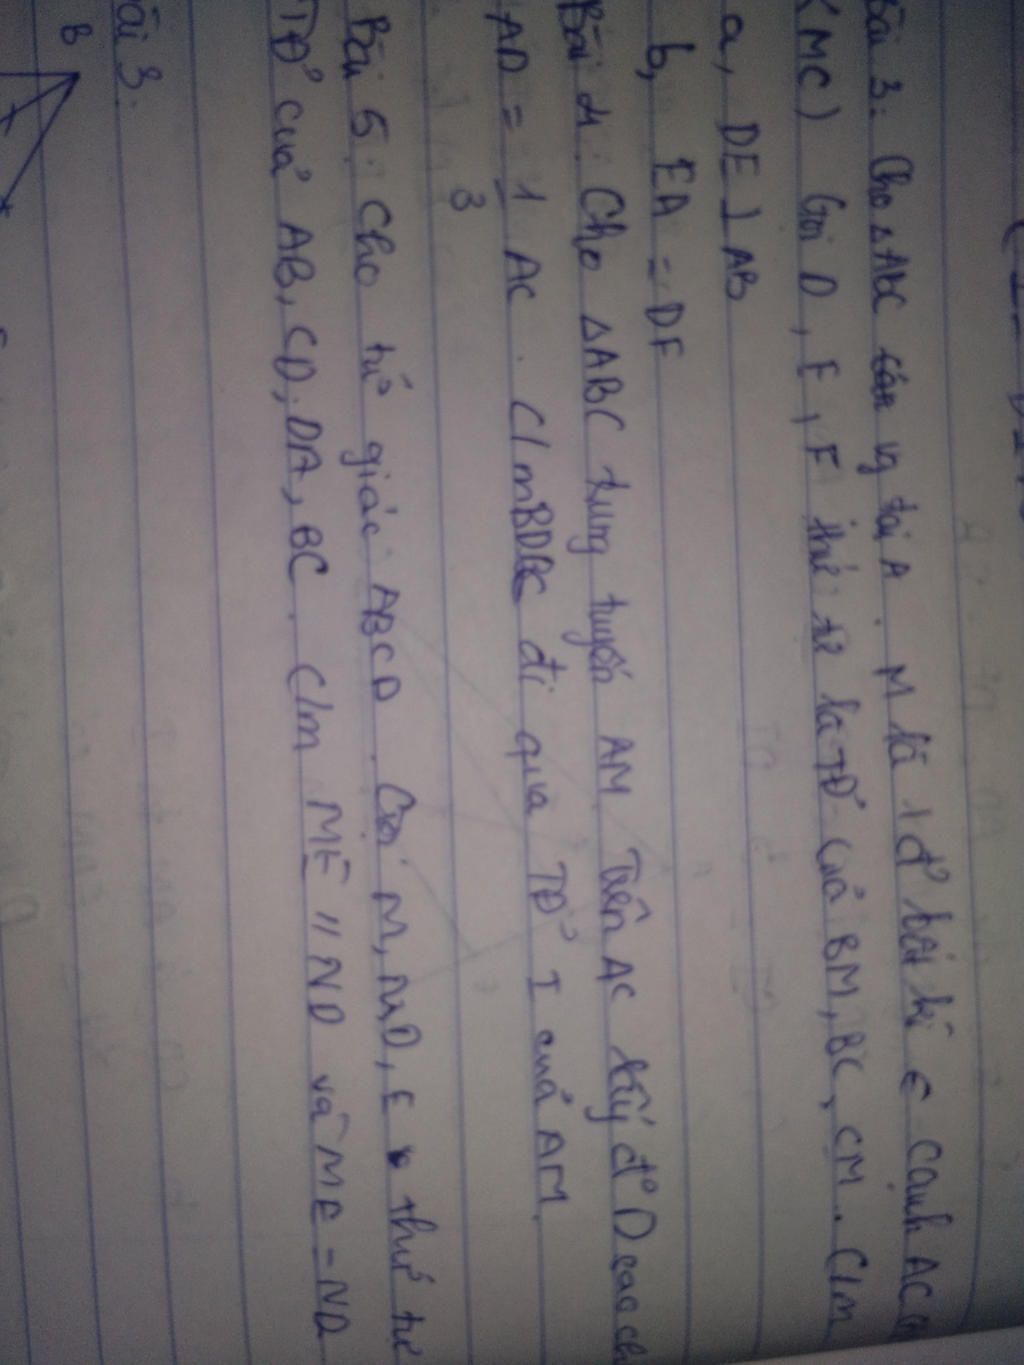 Bài 3: Cho △ABC vg tại A. M là 1 đ' bất kì ∈ cạnh AC
<MC) Gọi D, E, F thứ tự là TĐ' của BM, BC, CM. C/m
a, DE ⊥ AB
b, EA = DF
Bài 4: Cho △ABC trung tuyến AM Trên AC lấy đ' D sao ch
AD = 1/3 AC. C/m đi qua TĐ' I của AM.
Bài 5: Cho tứ giác ABCD. Gọi M, N, D, E thứ tự
TĐ' của AB, CD, DA, BC. C/m ME // ND và ME = ND
ài 3.
B